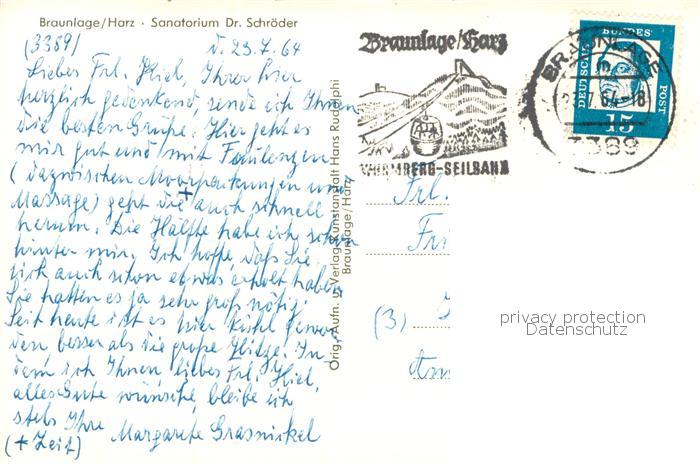 Braunlage/Harz · Sanatorium Dr. Schröder
(3389) d. 23.7.64
Liebes Frl. Kiel, Ihrer hier
herzlich gedenkend sende ich Ihnen
die besten Grüße. Hier geht es
mir gut und mit Faulenzen
(dazwischen Moorpackungen und
Massage) geht die + auch schnell
herum. Die Hälfte habe ich schon
hinter mir. Ich hoffe, daß Sie
sich auch schon etwas erholt haben
Sie hatten es ja sehr groß nötig.
Seit heute ist es hier kühl gewor-
den besser als die große Hitze. In-
dem ich Ihnen, liebes Frl. Kiel,
alles Gute wünsche, bleibe ich
stets Ihre
Margarete Grasnickel
(+ Zeit)
Orig.-Aufn. u. Verlag Kunstanstalt Hans Rudolphi
Braunlage/Harz
Braunlage/Harz
WURMBERG-SEILBAHN
BRAUNLAGE
7.64-18
3389
DEUTSCHE BUNDESPOST
15
Frl.
(3)
privacy protection
Datenschutz